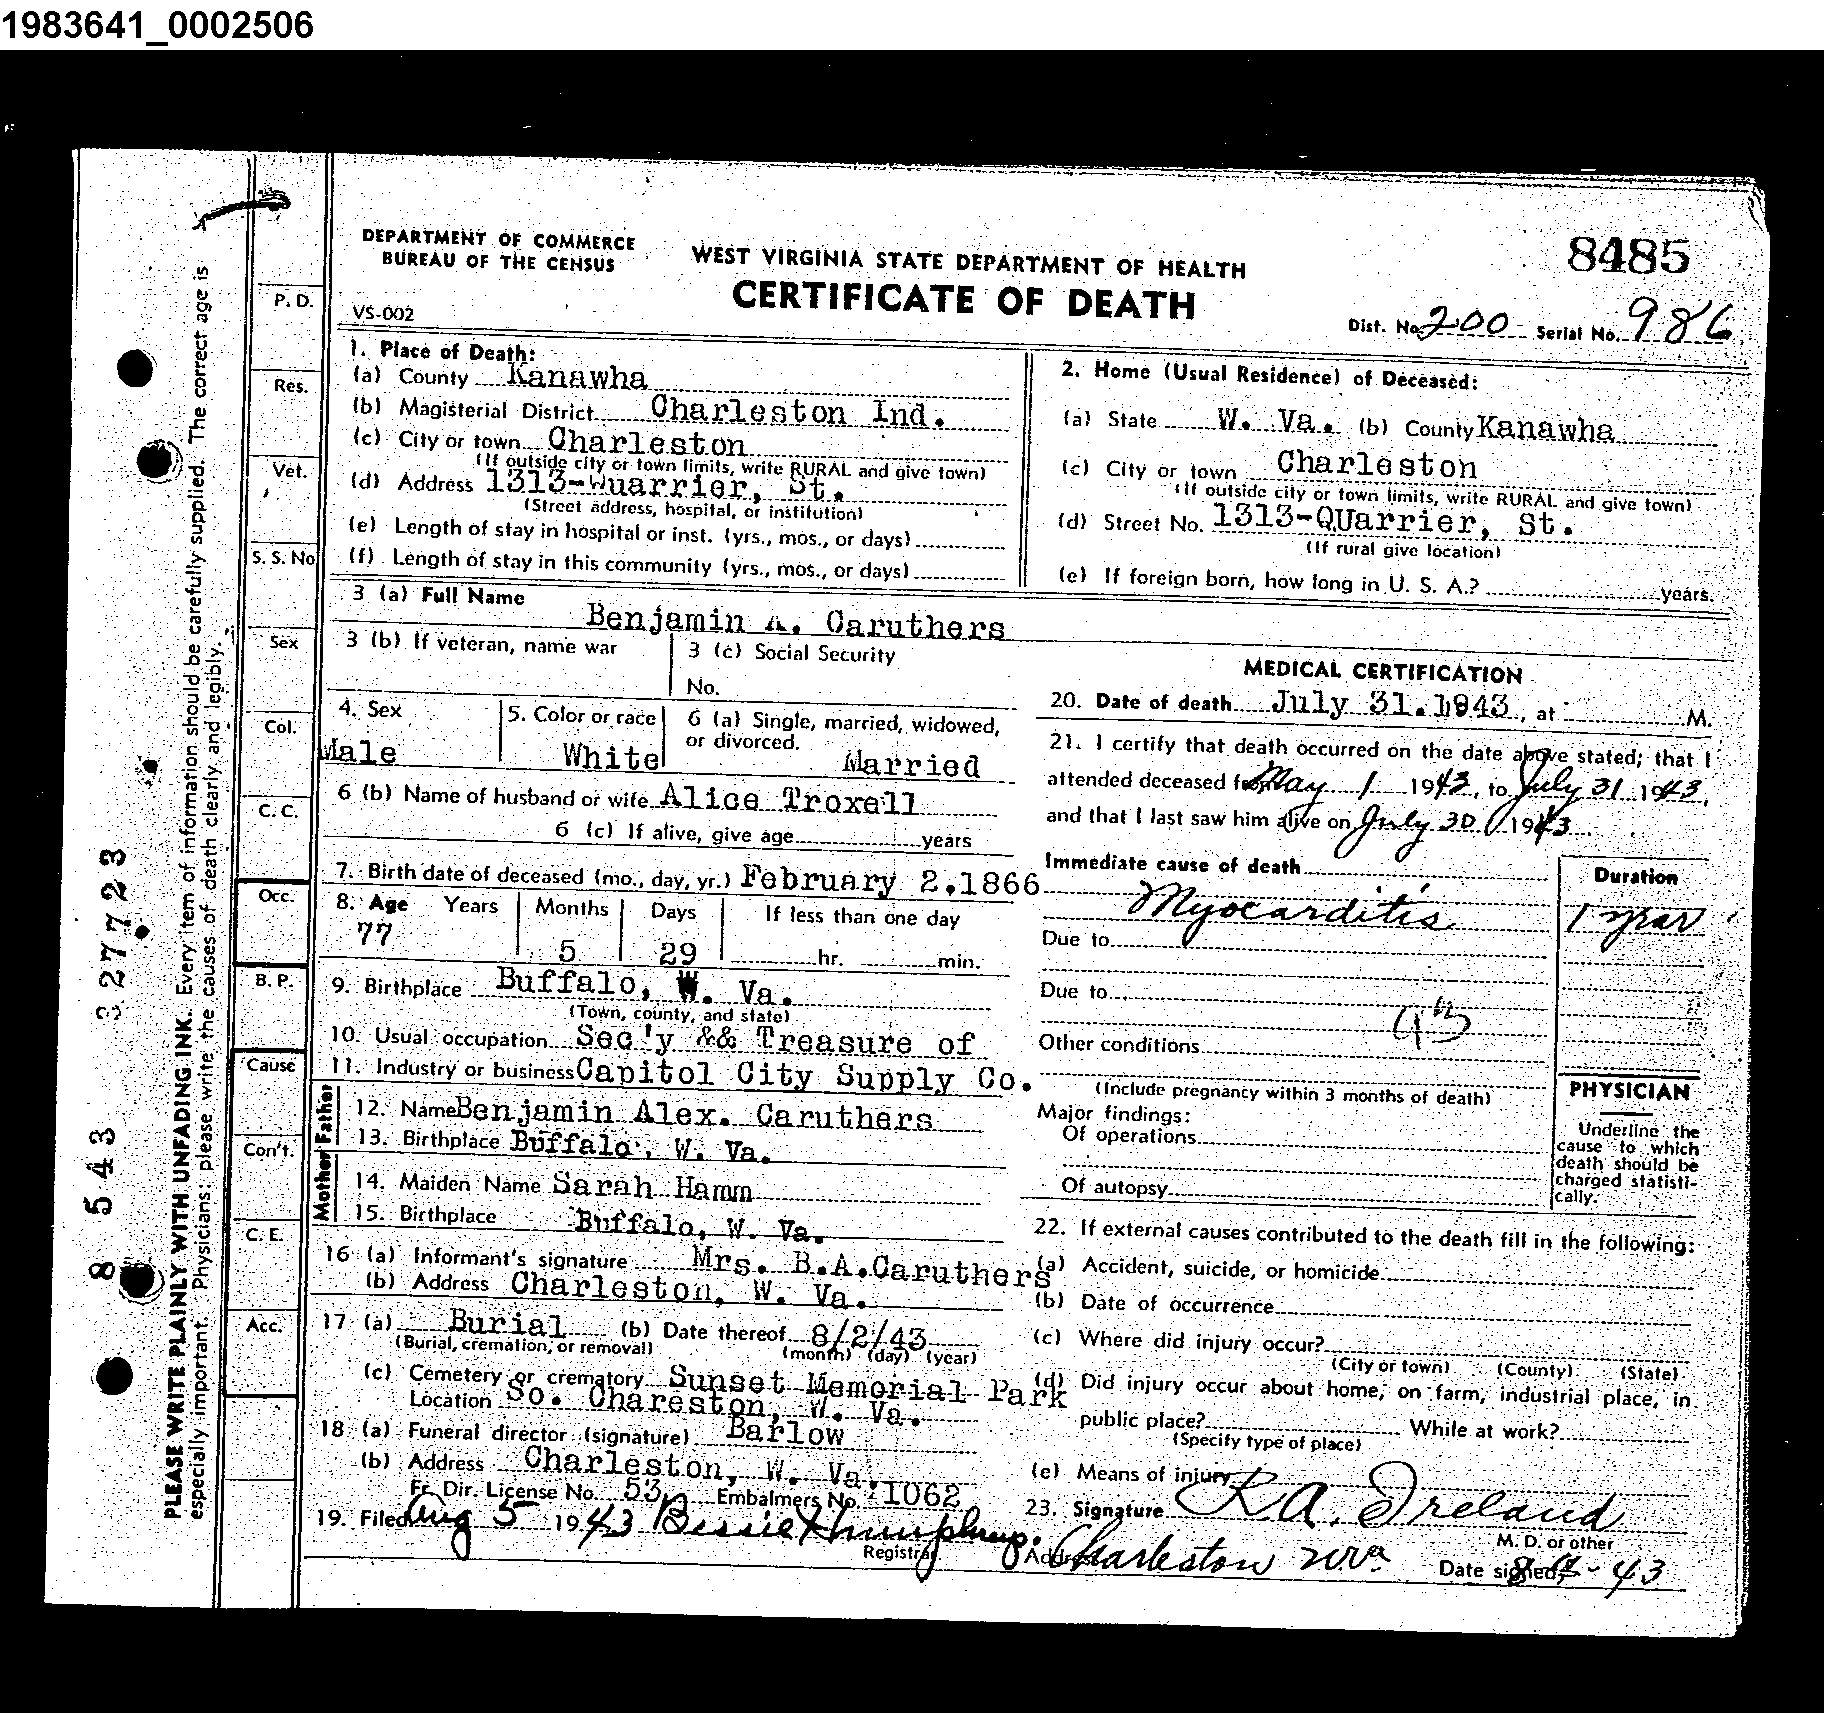 1983641_0002506
DEPARTMENT OF COMMERCE
BUREAU OF THE CENSUS
WEST VIRGINIA STATE DEPARTMENT OF HEALTH
CERTIFICATE OF DEATH
8485
VS-002
Dist. No. 200 Serial No. 986
1. Place of Death:
(a) County Kanawha
(b) Magisterial District Charleston Ind.
(c) City or town Charleston
(If outside city or town limits, write RURAL and give town)
(d) Address 1313-Quarrier, St.
(Street address, hospital, or institution)
(e) Length of stay in hospital or inst. (yrs., mos., or days)
(f) Length of stay in this community (yrs., mos., or days)
2. Home (Usual Residence) of Deceased:
(a) State W. Va. (b) County Kanawha
(c) City or town Charleston
(If outside city or town limits, write RURAL and give town)
(d) Street No. 1313-QUarrier, St.
(If rural give location)
(e) If foreign born, how long in U. S. A.? years.
3 (a) Full Name
Benjamin A. Caruthers
3 (b) If veteran, name war
3 (c) Social Security
No.
4. Sex
Male
5. Color or race
White
6 (a) Single, married, widowed,
or divorced.
Married
6 (b) Name of husband or wife Alice Troxell
6 (c) If alive, give age years
7. Birth date of deceased (mo., day, yr.) February 2.1866
8. Age Years Months Days If less than one day
77 5 29 hr. min.
9. Birthplace Buffalo, W. Va.
(Town, county, and state)
10. Usual occupation Sec'y && Treasure of
11. Industry or business Capitol City Supply Co.
Father
12. Name Benjamin Alex. Caruthers
13. Birthplace Buffalo, W. Va.
Mother
14. Maiden Name Sarah Hamm
15. Birthplace Buffalo, W. Va.
16 (a) Informant's signature Mrs. B.A.Caruthers
(b) Address Charleston, W. Va.
17 (a) Burial (b) Date thereof 8/2/43
(Burial, cremation, or removal) (month) (day) (year)
(c) Cemetery or crematory Sunset Memorial Park
Location So. Chareston, W. Va.
18 (a) Funeral director (signature) Barlow
(b) Address Charleston, W. Va.
Fr. Dir. License No. 53 Embalmers No. 1062
19. Filed Aug 5 1943 Bessie Humphreys.
Registrar
MEDICAL CERTIFICATION
20. Date of death July 31.1943, at M.
21. I certify that death occurred on the date above stated; that I
attended deceased from May 1 1943, to July 31 1943,
and that I last saw him alive on July 30 1943
Immediate cause of death
Myocarditis
Duration
1 year
Due to
Due to
Other conditions
(Include pregnancy within 3 months of death)
Major findings:
Of operations
Of autopsy
PHYSICIAN
Underline the
cause to which
death should be
charged statisti-
cally.
22. If external causes contributed to the death fill in the following:
(a) Accident, suicide, or homicide
(b) Date of occurrence
(c) Where did injury occur?
(City or town) (County) (State)
(d) Did injury occur about home, on farm, industrial place, in
public place? While at work?
(Specify type of place)
(e) Means of injury
23. Signature R A. Ireland
M. D. or other
Address Charleston W Va Date signed 43
P. D.
Res.
Vet.
S. S. No
Sex
Col.
C. C.
Occ.
B. P.
Cause
Con't.
C. E.
Acc.
PLEASE WRITE PLAINLY WITH UNFADING INK. Every item of information should be carefully supplied. The correct age is
especially important. Physicians: please write the causes of death clearly and legibly.
8 543 327723